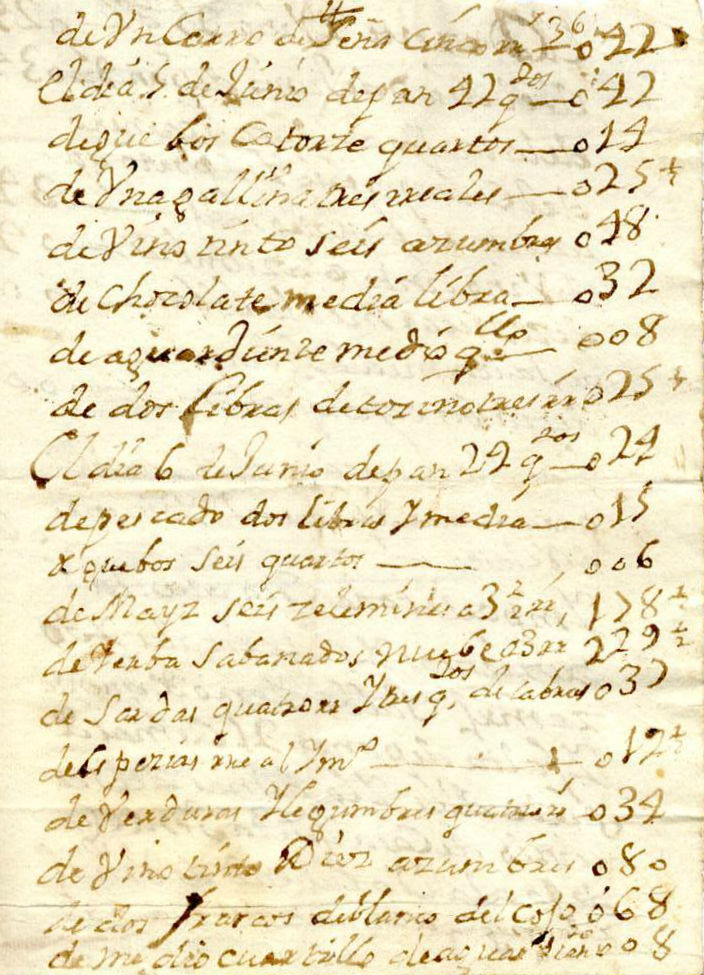 de Vn Carro de Leña cinco rrs 042
El dia 5 de Junio de pan 42 qdos 042
de guebos Catorze quartos 014
de Vna gallina tres rreales 025½
de Vino tinto seis azumbres 048
de Chocolate media libra 032
de aguardiente medio qllo 008
de dos libras de tozino tres rrs 025½
El dia 6 de Junio de pan 24 qdos 024
de pescado dos libras Y media 015
de guebos seis quartos 006
de Mayz seis zelemines a 3½ rrs 178½
de Yerba Sabanados nuebe a 3 rr 229½
de Sardas quatro rr Y tres qdos de cabras 037
de Espezias rreal Y mº 012½
de Verduras Y legumbres quatro rrs 034
de Vino tinto Diez azumbres 080
de dos frascos de blanco del coso 068
de medio cuartillo de aguardiente 008